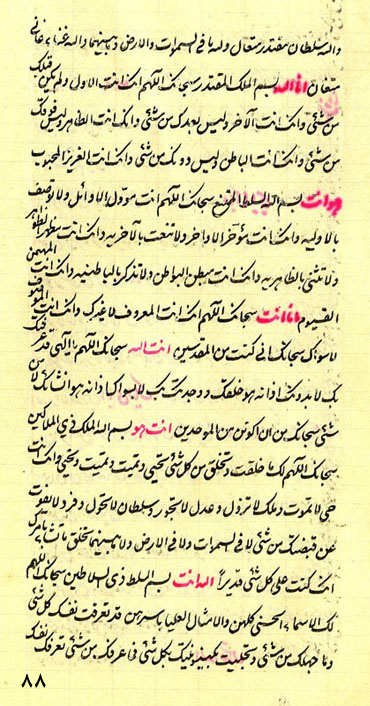 والله سلطان مقتدر متعال وله ما في السموات والارض وما بينهما والله غني
متعان انا الله بسم الملك المقتدر سبحانك اللهم انك انت الاول ولم يكن قبلك
من شئ وانك انت الآخر وليس بعدك من شئ وانك انت الظاهر وليس فوقك
من شئ وانك انت الباطن وليس دونك من شئ وانك انت العزيز المحبوب
هو انت بسم الله السلط سبحانك اللهم انت مؤول الاوائل ولا توصف
بالاوليه وانك انت مؤخر الاواخر ولا تنعت بالآخريه وانك انت مظهر الظواهر
ولا تثنى بالظاهريه وانك انت مبطن البواطن ولا تذكر بالباطنيه وانك انت المهيمن
القيوم انا انت سبحانك اللهم انك انت المعروف لا غيرك وانك انت الموصوف
لا سواك سبحانك اني كنت من المقدسين انت الله سبحانك اللهم يا الهي قد عرفتك
بك لا بدونك اذ انه هو خلقك ووحدتك بك لا بسواك اذ انه هو
شئ سبحانك من ان اكونن من الموحدين انت هو بسم الله الملك ذي الملاكين
سبحانك اللهم لك ما خلقت وتخلق من كل شئ تحيي وتميت وتميت وتحيي وانك انت
حي لا تموت وملك لا تزول وعدل لا تجور وسلطان لا تحول وفرد لا يفوت
عن قبضتك من شئ لا في السموات ولا في الارض ولا ما بينهما تخلق ما تشاء بامرك
انك كنت على كل شئ قديرا الله انت بسم السلط ذي السلاطين سبحانك اللهم
لك الاسماء الحسنى كلهن والامثال العليا باسرهن قد تعرفت نفسك كل شئ
وما جهلك من شئ وتجليت بكينونيتك بكل شئ في اعرفك من شئ تعرفك نفسك
٨٨